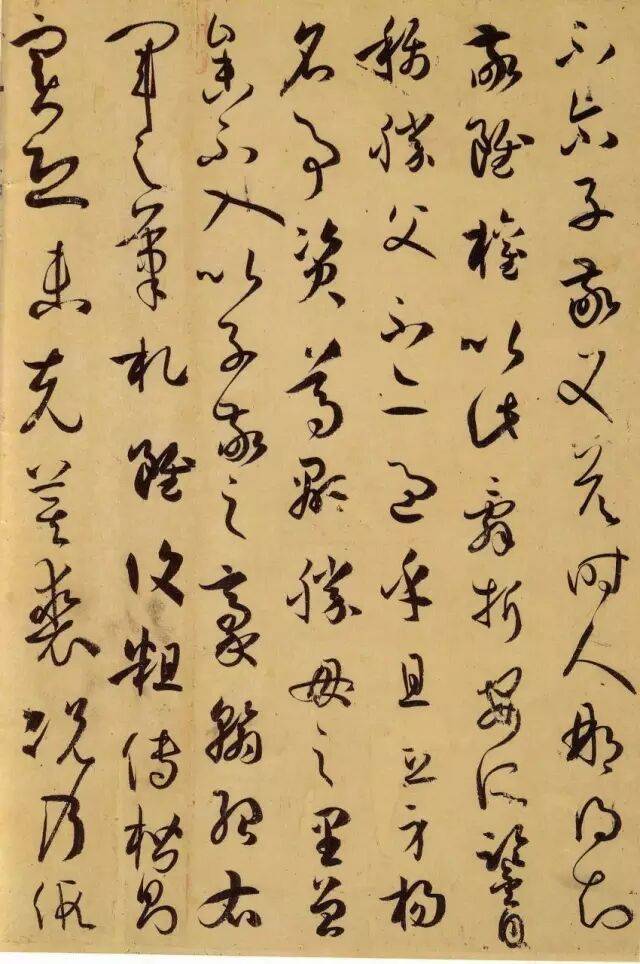 不尔子敬又答時人那得知
敬雖權以此辭折安所鑒自
稱勝父不亦過乎且立身揚
名事資尊顯勝母之里曾
參不入以子敬之豪翰紹右
軍之筆札雖復粗傳楷則
實恐未克箕裘況乃假